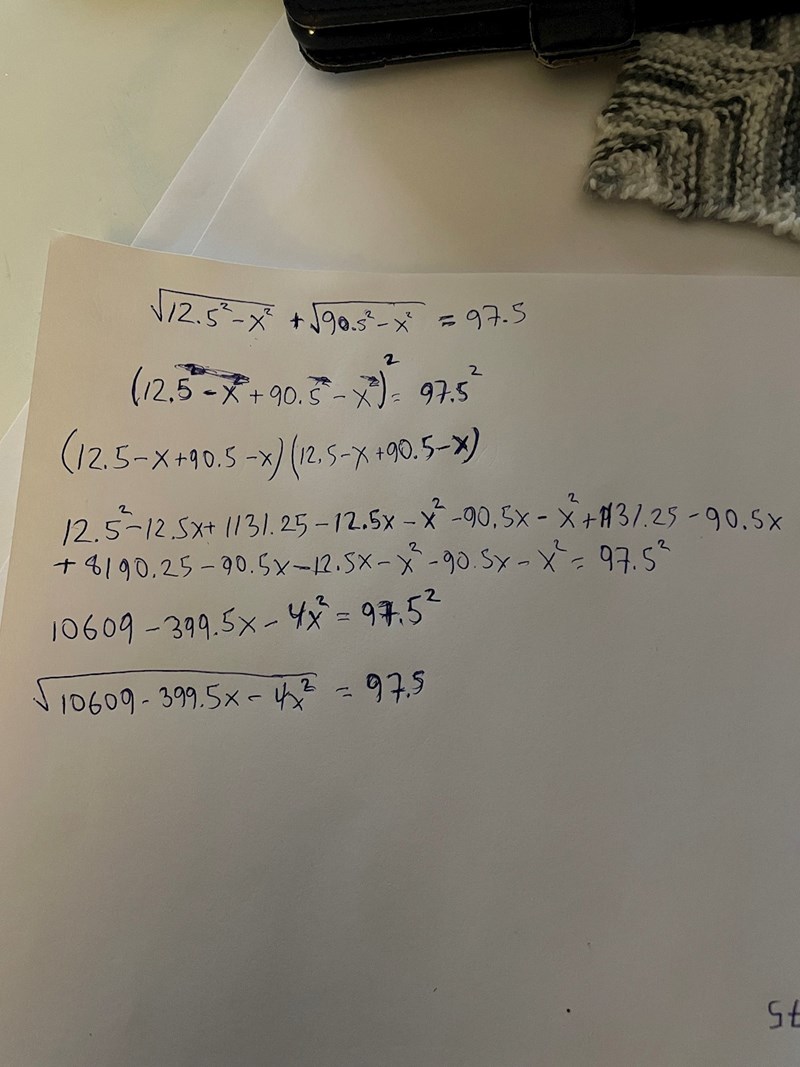 √12.5²-x² + √90.5²-x² = 97.5
(12.5-x+90.5-x)² = 97.5²
(12.5-x+90.5-x)(12.5-x+90.5-x)
12.5²-12.5x+1131.25-12.5x-x²-90.5x-x²+1131.25-90.5x
+8190.25-90.5x-12.5x-x²-90.5x-x²=97.5²
10609-399.5x-4x²=97.5²
√10609-399.5x-4x² = 97.5
75